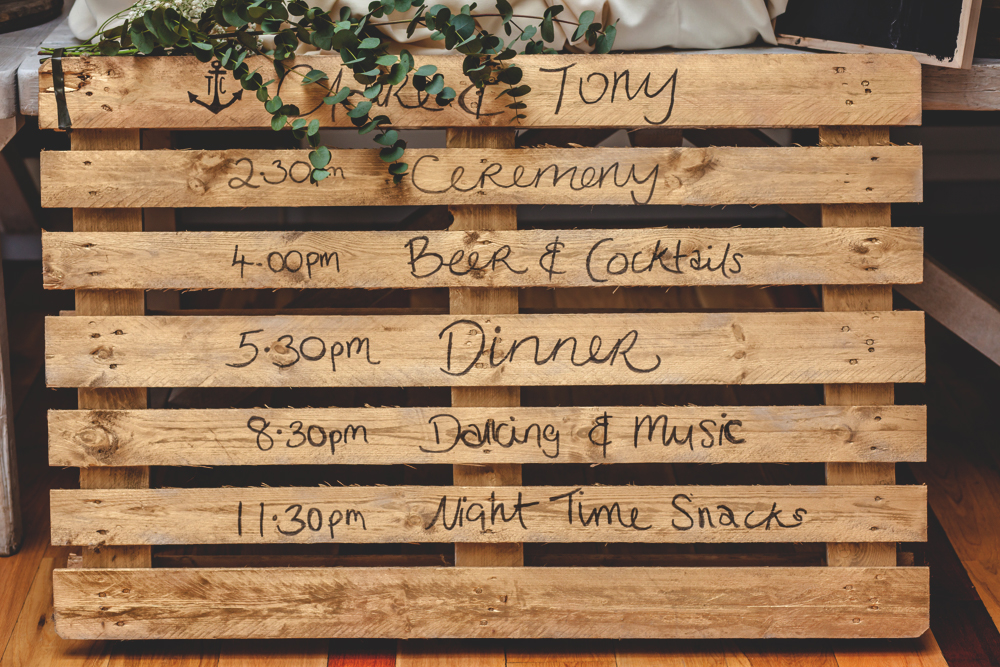 & Tony
2.30pm Ceremony
4.00pm Beer & Cocktails
5.30pm Dinner
8.30pm Dancing & Music
11.30pm Night Time Snacks